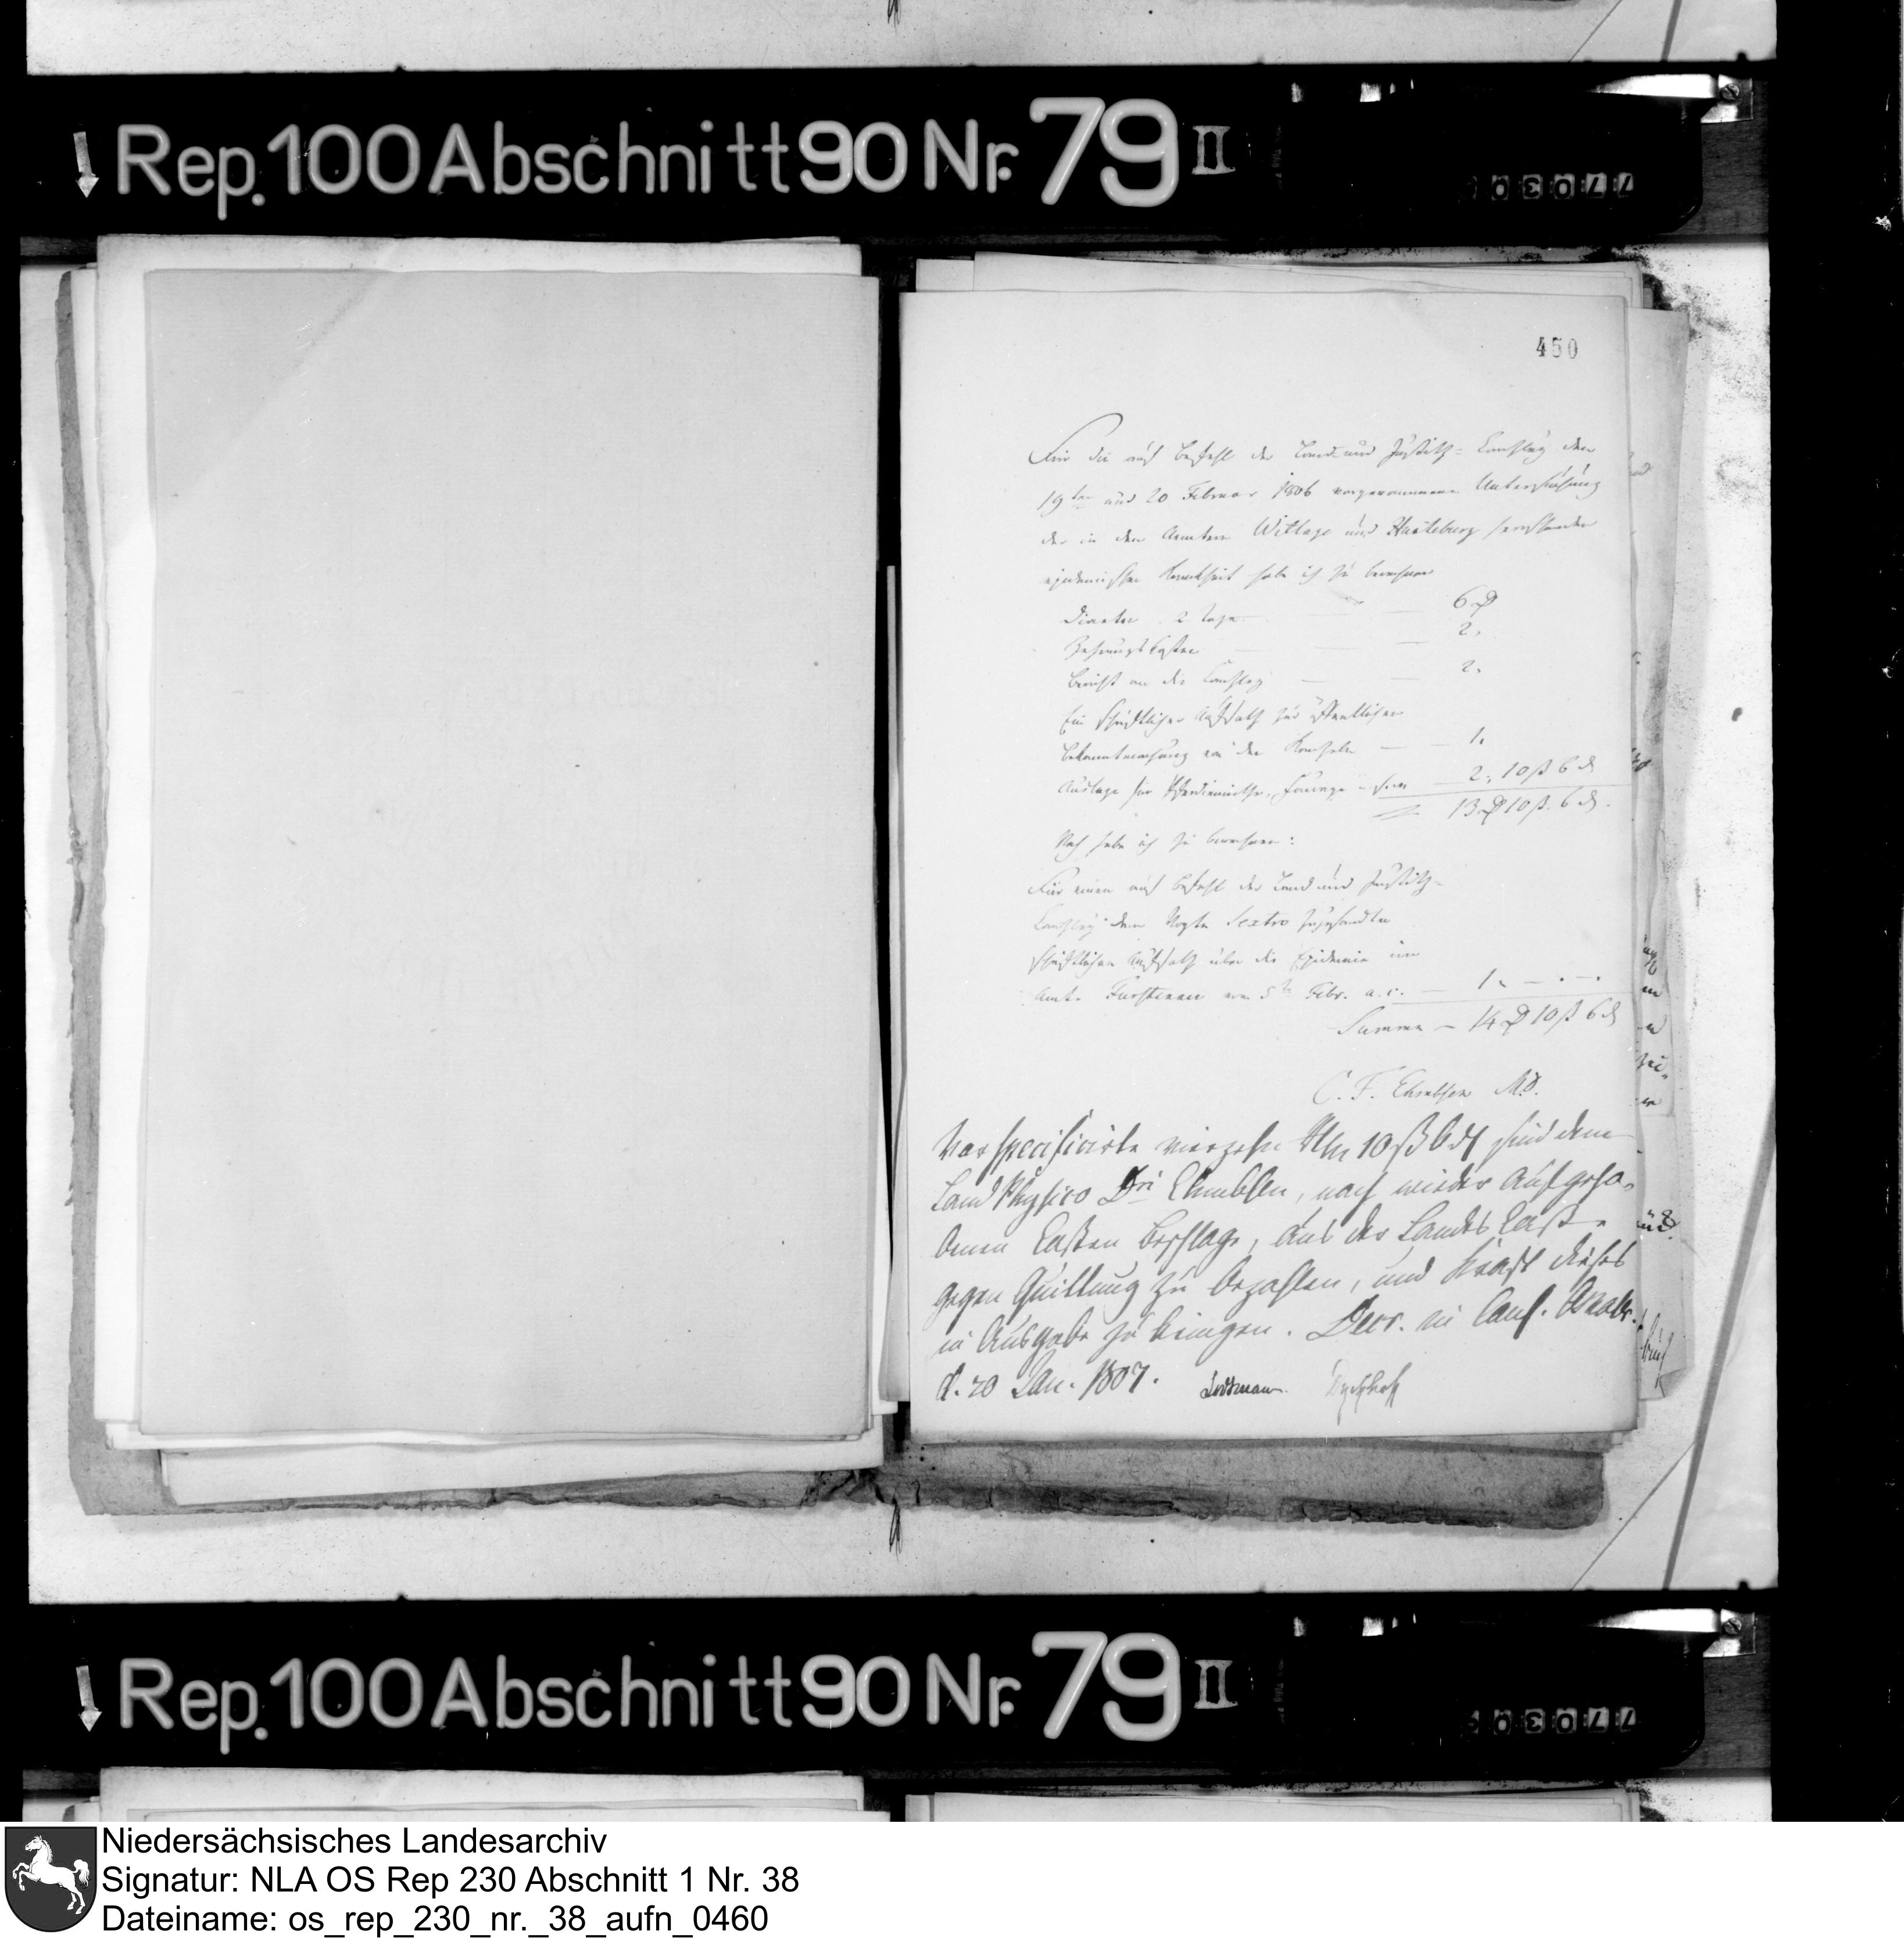 Rep. 100 Abschnitt 90 Nr. 79 II
77030
450
Für die auf Befehl der Land und Justitz-Cantzley den
19ten und 20 Februar 1806 vorgenommene Untersuchung
der in den Aemtern Wittlage und Hunteburg herrschenden
epidemischen Krankheit habe ich zu berechnen
Diaeten 2 Tage — — 6 rt
Zehrungskosten — — 2.
Bericht an die Cantzley — — 2.
Ein schriftlicher Aufsatz zur öffentlichen
Bekanntmachung von den Kanzeln — — 1.
Auslage für Pferdemiethe, Fourage — 2. 10 ß 6 d
13 rt 10 ß. 6 d.
Noch habe ich zu berechnen:
Für einen auf Befehl der Land und Justitz-
Cantzley dem Vogte Sextro zugesandten
schriftlichen Aufsatz über die Epidemie im
Amte Fürstenau vom 5ten Febr. a. c. — 1. — . — .
Summa — 14 rt 10 ß 6 d
C. F. Ehmbsen M.D.
Vorspecificirte vierzehn Rthlr 10 ß 6 d sind dem
Land Physico Dri Ehmbsen, nach wieder aufgeho-
benen Cassen Beschlage, aus der Landes Casse
gegen Quittung zu bezahlen, und Kraft dieses
in Ausgabe zu bringen. Decr. in Canc. Osnabr.
d. 20 Jan. 1807.
Rep. 100 Abschnitt 90 Nr. 79 II
77030
Niedersächsisches Landesarchiv
Signatur: NLA OS Rep 230 Abschnitt 1 Nr. 38
Dateiname: os_rep_230_nr._38_aufn_0460